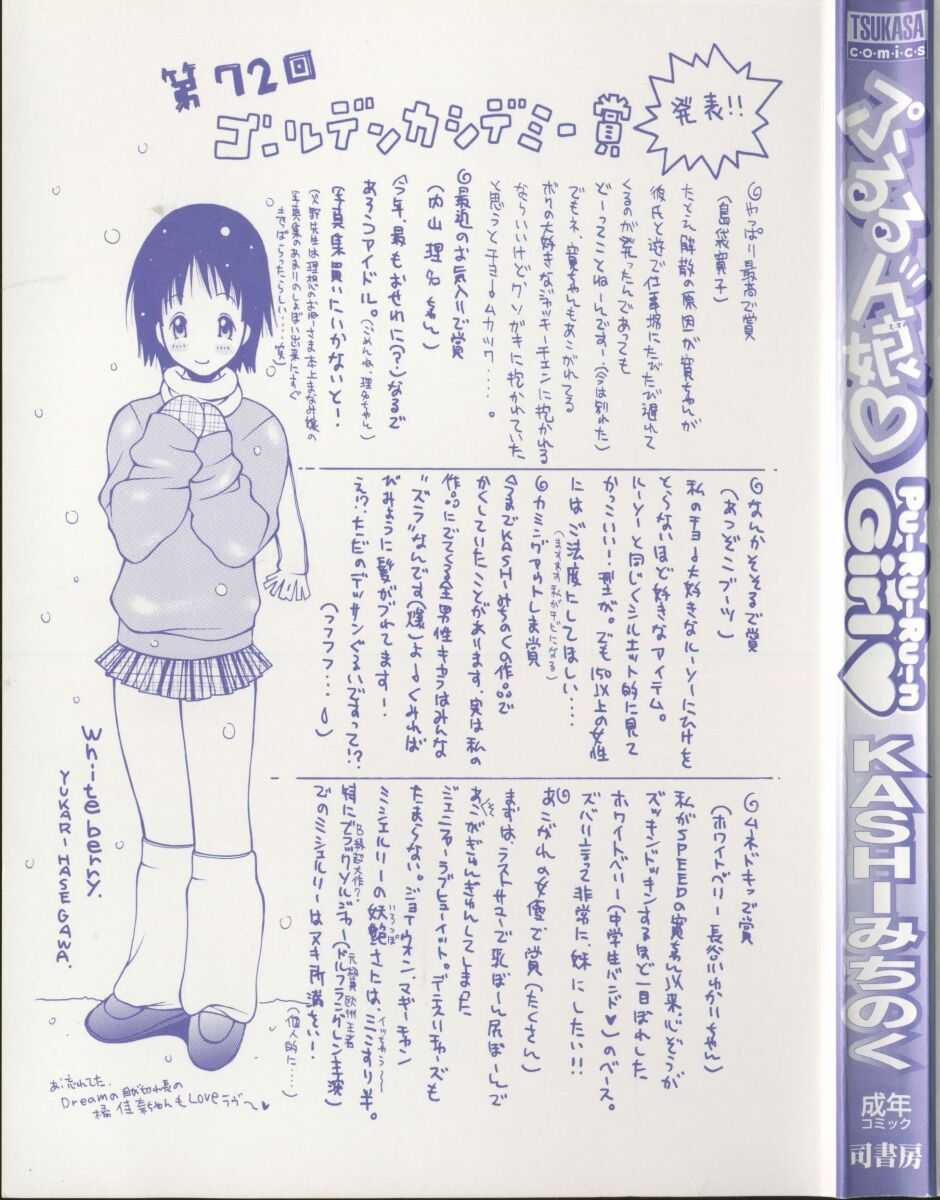 第72回
ゴールデンカシデミー賞
発表!!
やっぱり最高で賞
(島袋寛子)
たとえ解散の原因が寛ちゃんが
彼氏と遊んで仕事場にたびたび遅れて
くるのが発ったんであっても
どーってことねーんです…(今は別れた)
でもネ、寛ちゃんもあこがれてる
ボクの大好きなジャッキーチェンに抱かれる
ならいいけど、クソガキに抱かれていた
と思うとチョームカック……。
最近のお気入りで賞
(内山理名ちゃん)
今年、最もおせわに(?)なるで
あろうアイドル。(ごめんね、理名ちゃん)
写真集買いにいかないと!
なんかそそるで賞
(あつぞこブーツ)
私のチョー大好きなルーソーにひけを
とらないほど好きなアイテム。
ルーソーと同じくシルエット的に見て
かっこいい!型が。でも150以上の女性
にはご法度にしてほしい…。
(ますます私がチビになる)
カミングアウトしま賞
今までKASHIみちのくの作品で
かくしていたことがあります。実は私の
作品にでてくる全男性キャラはみんな
"ズラ"なんです(爆)よーくみれば
びみょうに髪がづれてます!
え!?ただのデッサンぐるいですって!?
(フフフフ…)
ムネドキッで賞
(ホワイトベリー長谷川ゆかりちゃん)
私がSPEEDの寛ちゃん以来、心ぞうが
ズッキンドッキンするほど一目ぼれした
ホワイトベリー(中学生バンド♥)のベース。
ズバリ言って非常に、妹にしたい!!
あこがれの女優で賞(たくさん)
まずは、ラストサマーで乳ぼーん尻ぼーんで
あそこがぎゅんぎゅんしてしまった
ジェニファーラブヒューイット。デニスリチャーズも
たまらない。ジョイウォン、マギーチャン
ミシェルリーの妖艶さとは、ミミずり半。
特にブラックソルジャー(ドルフラングレン主演)
でのミシェルリーはヌキ所満さい!
(個人的に……)
White berry.
YUKARI HASEGAWA.
お、忘れてた。
Dreamの目が切れ長の
橘佳奈ちゃんもLoveラヴ〜♥
TSUKASA
comics
ぷるるン娘♡
PU-RU-RU-n
Girl♡
KASHIみちのく
成年
コミック
司書房